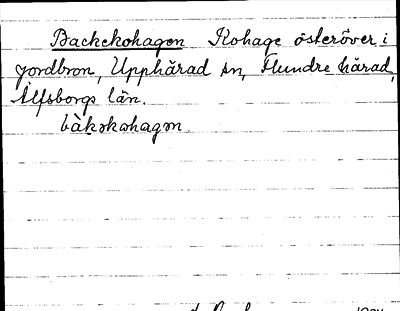 Backekohagen Kohage österöver i
jordbron, Upphärad sn, Flundre härad,
Älfsborgs län.
bàkokohagen